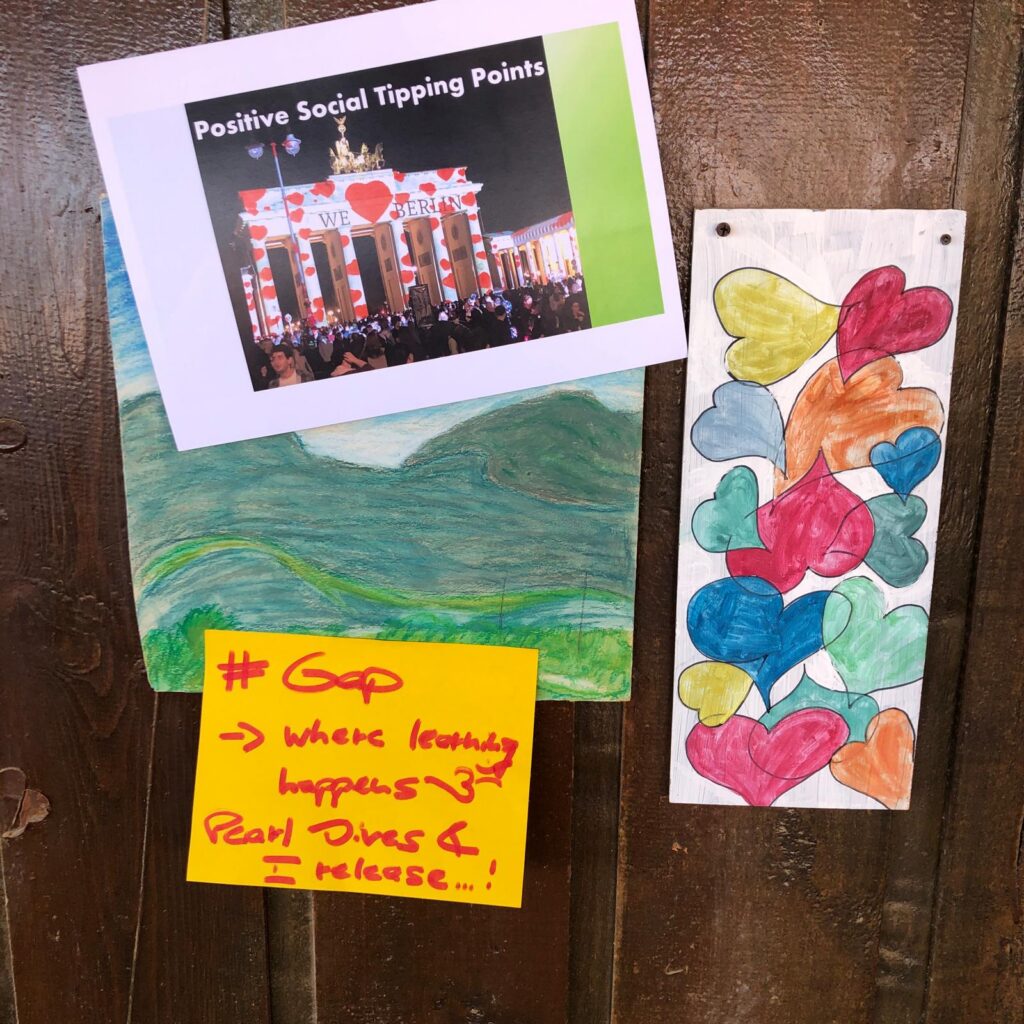 Positive Social Tipping Points
WE BERLIN
# Gap
→ where learning
happens
Pearl Dives &
I release...!